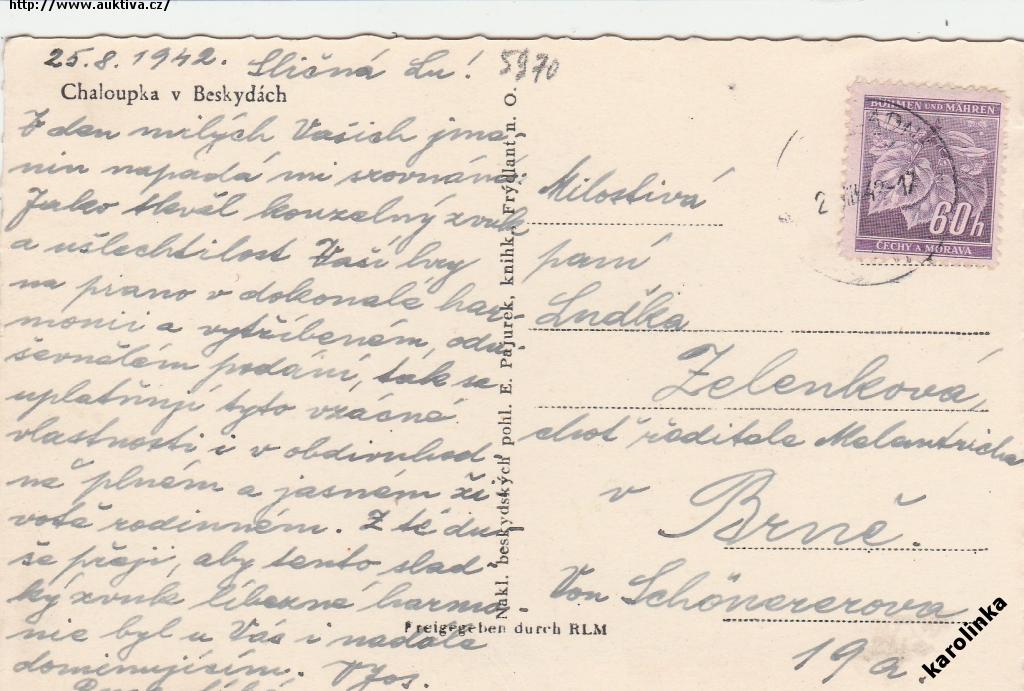 http://www.auktiva.cz/
25.8.1942. Sličná Lu!
5970
Chaloupka v Beskydách
V den milých Vašich jme-
nin napadá mi srovnání:
Jako skvěl kouzelný zvuk
a ušlechtilost Vaší hry
na piano v dokonalé har-
monii a vytříbeném, odu-
ševnělém podání, tak se
uplatňují tyto vzácné
vlastnosti i v obdivuhod
ně plném a jasném ži
votě rodinném. Z té du
še přeji, aby tento slad-
ký zvuk líbezné harmo-
nie byl u Vás i nadále
dominujícím.
Nakl. beskydských pohl. E. Pajurek, knihk., Frýdlant n. O.
Freigegeben durch RLM
BÖHMEN UND MÄHREN
60h
ČECHY A MORAVA
Milostivá
paní
Luďka
Zelenková,
choť ředitele Melantricha
v
Brně.
Von Schönererova
19a.
karolinka